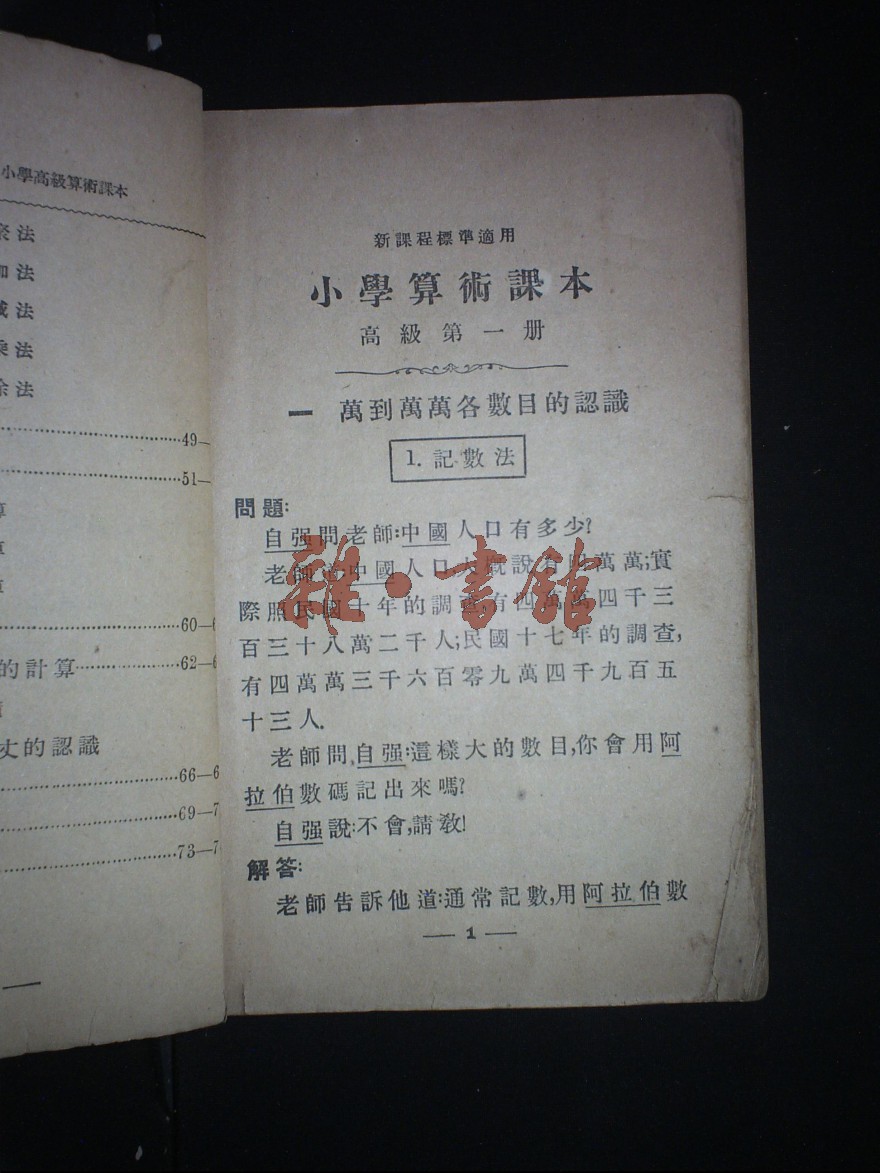 小學高級算術課本
法
法
法
法
法
49—
51—
60—6
的計算 62—6
丈的認識
66—6
69—7
73—7
新課程標準適用
小學算術課本
高級第一册
一 萬到萬萬各數目的認識
1. 記數法
問題:
自强問老師:中國人口有多少?
老師道:中國人口大概說有四萬萬;實
際照民國十年的調查,有四萬萬四千三
百三十八萬二千人;民國十七年的調查,
有四萬萬三千六百零九萬四千九百五
十三人.
老師問自强:這樣大的數目,你會用阿
拉伯數碼記出來嗎?
自强說:不會,請敎!
解答:
老師告訴他道:通常記數,用阿拉伯數
— 1 —
雜·書館